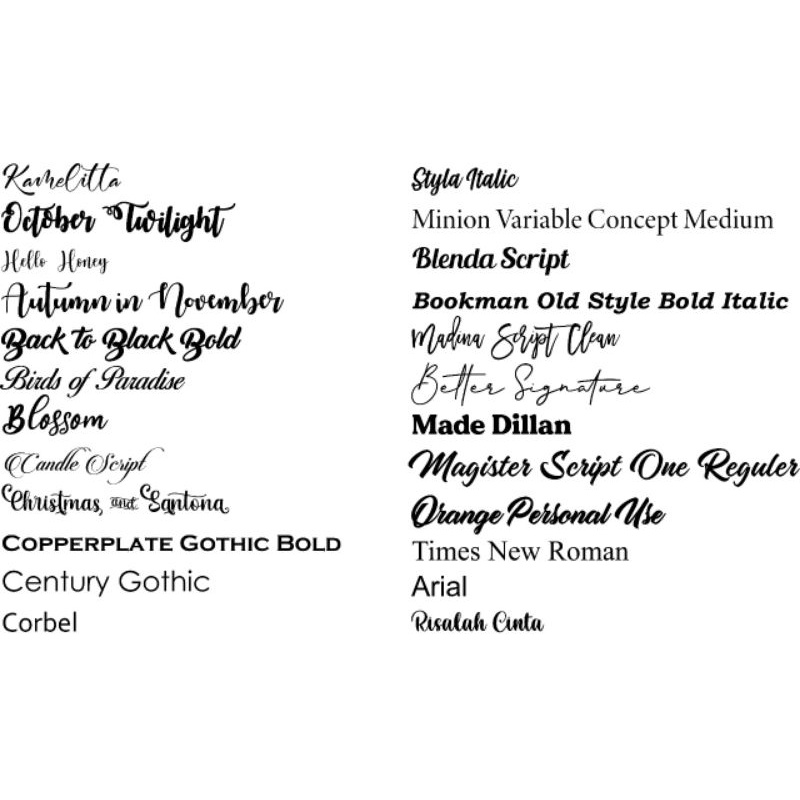 Kamelitta
October Twilight
Hello Honey
Autumn in November
Back to Black Bold
Birds of Paradise
Blossom
Candle Script
Christmas, and Santona
Copperplate Gothic Bold
Century Gothic
Corbel
Styla Italic
Minion Variable Concept Medium
Blenda Script
Bookman Old Style Bold Italic
Madina Script Clean
Better Signature
Made Dillan
Magister Script One Reguler
Orange Personal Use
Times New Roman
Arial
Risalah Cinta